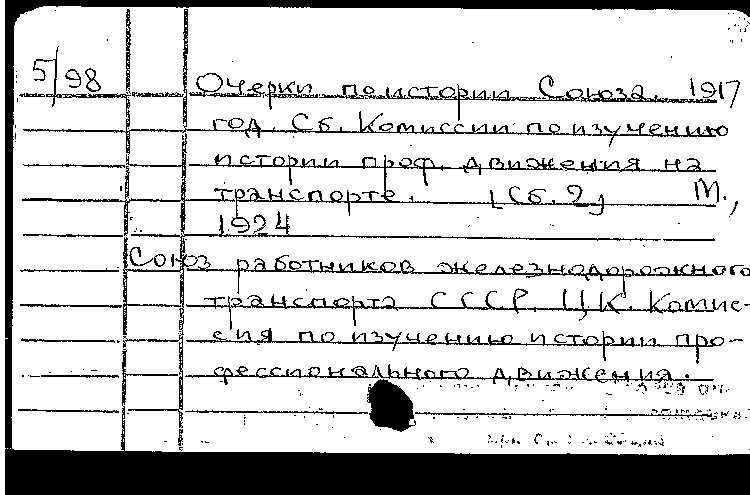 5/98
Очерки по истории Союза. 1917
год. Сб. Комиссии по изучению
истории проф. движения на
транспорте. [Сб. 2] М.,
1924
Союз работников железнодорожного
транспорта СССР. ЦК. Комис-
сия по изучению истории про-
фессионального движения.